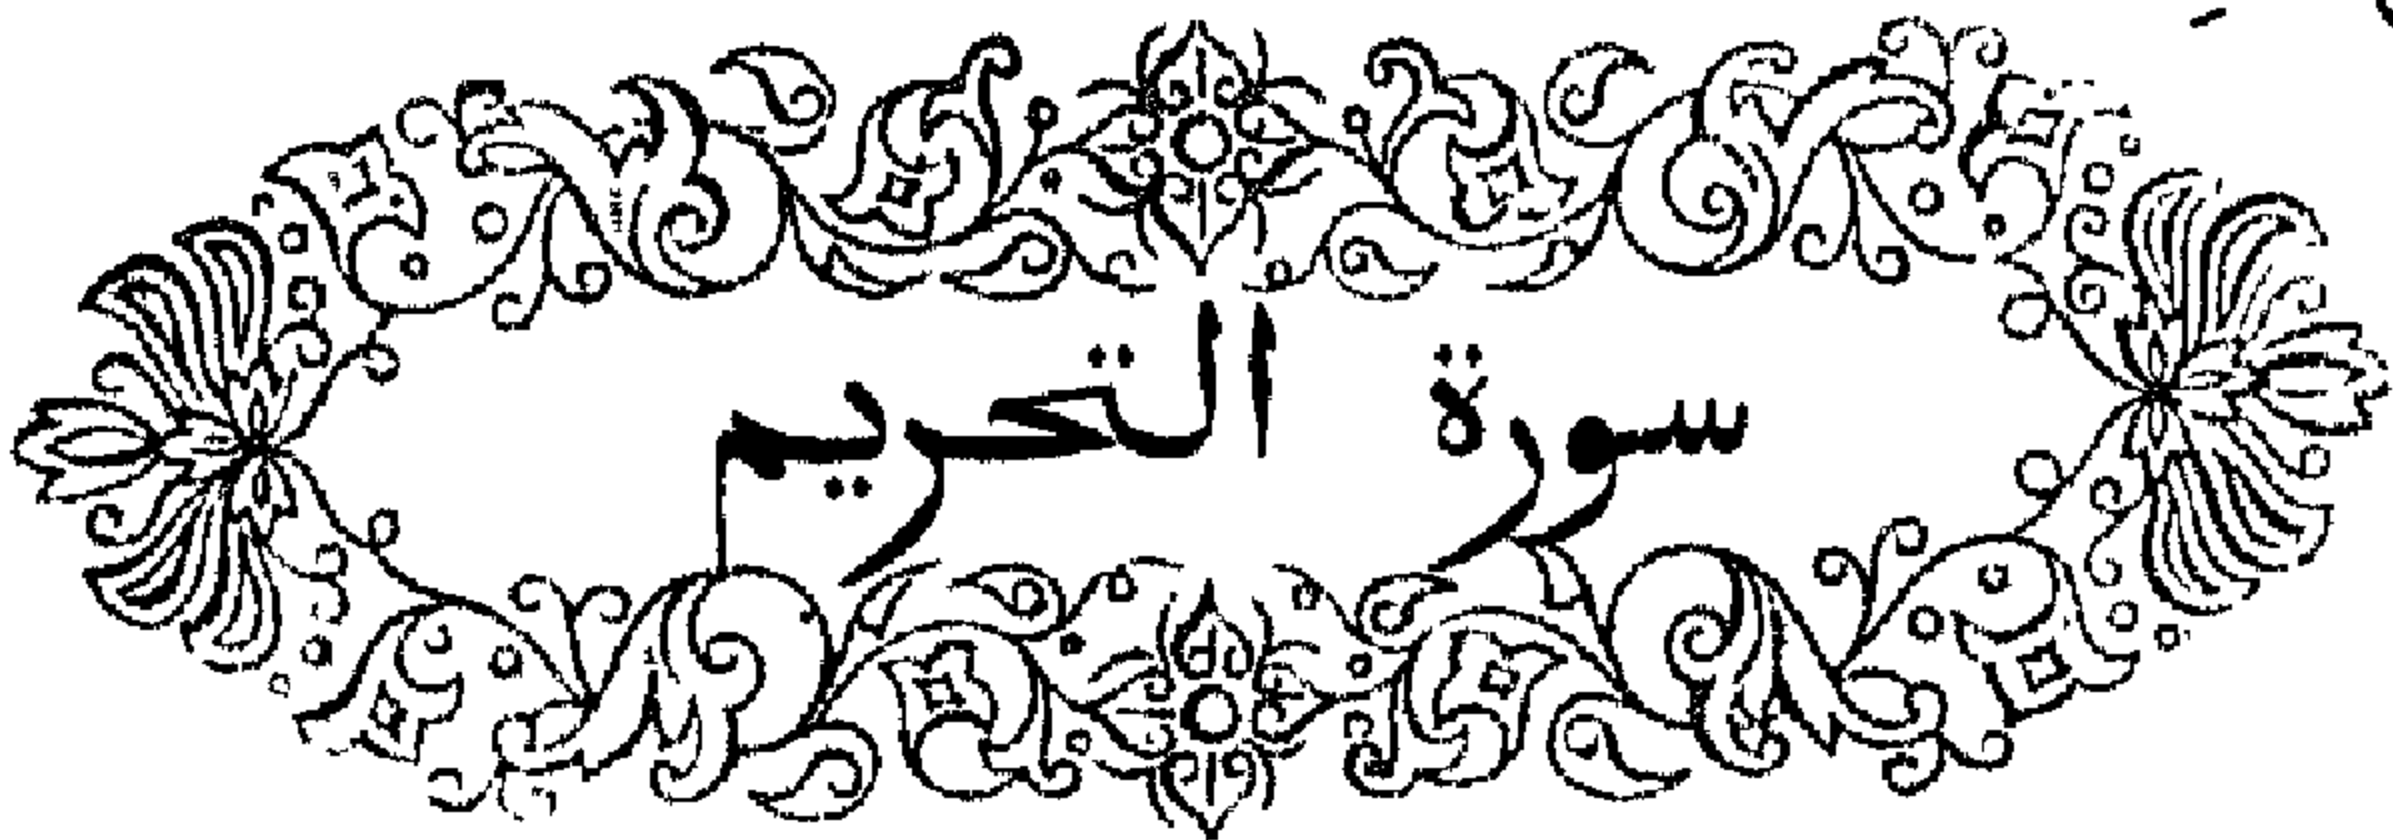 سورة التحريم